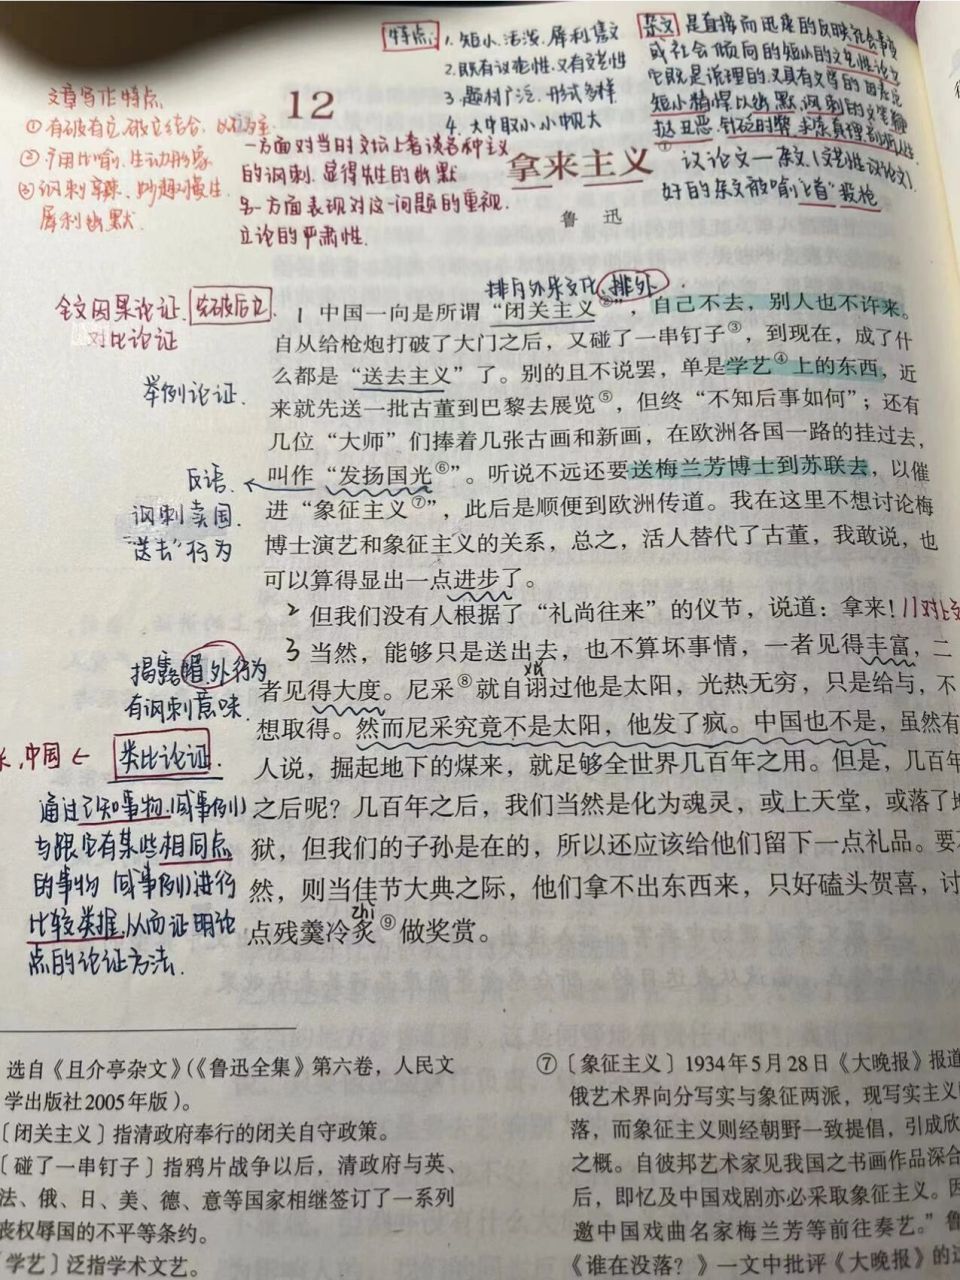 特点：
1. 短小、活泼、犀利隽文
2. 既有议论性，又有文艺性
3. 题材广泛、形式多样
4. 大中取小，小中见大
杂文 是直接而迅速的反映社会事变
或社会倾向的短小的文艺性论文
它既是说理的，又具有文学的
短小精悍 以幽默、讽刺的文笔
议论文—杂文（文艺性议论文）
好的杂文被喻“匕首”“投枪
文章写作特点
①有破有立，破立结合，以破为主
②引用比喻，生动形象
③讽刺辛辣
犀利幽默
12
一方面对当时文坛上者谈各种主义
的讽刺，显得先生的幽默
另一方面表现对这一问题的重视，
立论的严肃性.
拿来主义①
鲁 迅
全文因果论证 先破后立
对比论证
举例论证.
反语.
讽刺卖国
“送去”行为
排斥外来文化，排外
1 中国一向是所谓“闭关主义②”，自己不去，别人也不许来。
自从给枪炮打破了大门之后，又碰了一串钉子③，到现在，成了什
么都是“送去主义”了。别的且不说罢，单是学艺④上的东西，近
来就先送一批古董到巴黎去展览⑤，但终“不知后事如何”；还有
几位“大师”们捧着几张古画和新画，在欧洲各国一路的挂过去，
叫作“发扬国光⑥”。听说不远还要送梅兰芳博士到苏联去，以催
进“象征主义⑦”，此后是顺便到欧洲传道。我在这里不想讨论梅
博士演艺和象征主义的关系，总之，活人替代了古董，我敢说，也
可以算得显出一点进步了。
2 但我们没有人根据了“礼尚往来”的仪节，说道：拿来！
3 当然，能够只是送出去，也不算坏事情，一者见得丰富，二
者见得大度。尼采⑧就自诩过他是太阳，光热无穷，只是给与，不
xǔ
想取得。然而尼采究竟不是太阳，他发了疯。中国也不是，虽然有
人说，掘起地下的煤来，就足够全世界几百年之用。但是，几百年
之后呢？几百年之后，我们当然是化为魂灵，或上天堂，或落了地
狱，但我们的子孙是在的，所以还应该给他们留下一点礼品。要
然，则当佳节大典之际，他们拿不出东西来，只好磕头贺喜，讨
zhì
点残羹冷炙⑨做奖赏。
揭露媚外行为
有讽刺意味
中国 ← 类比论证.
通过了知事物，(或事例)
与跟它有某些相同点
的事物（或事例）进行
比较类推，从而证明论
点的论证方法.
选自《且介亭杂文》（《鲁迅全集》第六卷，人民文
学出版社2005年版）。
〔闭关主义〕指清政府奉行的闭关自守政策。
〔碰了一串钉子〕指鸦片战争以后，清政府与英、
法、俄、日、美、德、意等国家相继签订了一系列
丧权辱国的不平等条约。
〔学艺〕泛指学术文艺。
⑦〔象征主义〕1934年5月28日《大晚报》报道
俄艺术界向分写实与象征两派，现写实主义
落，而象征主义则经朝野一致提倡，引成欣
之概。自彼邦艺术家见我国之书画作品深合
后，即忆及中国戏剧亦必采取象征主义。因
邀中国戏曲名家梅兰芳等前往奏艺。”鲁
《谁在没落？》一文中批评《大晚报》的